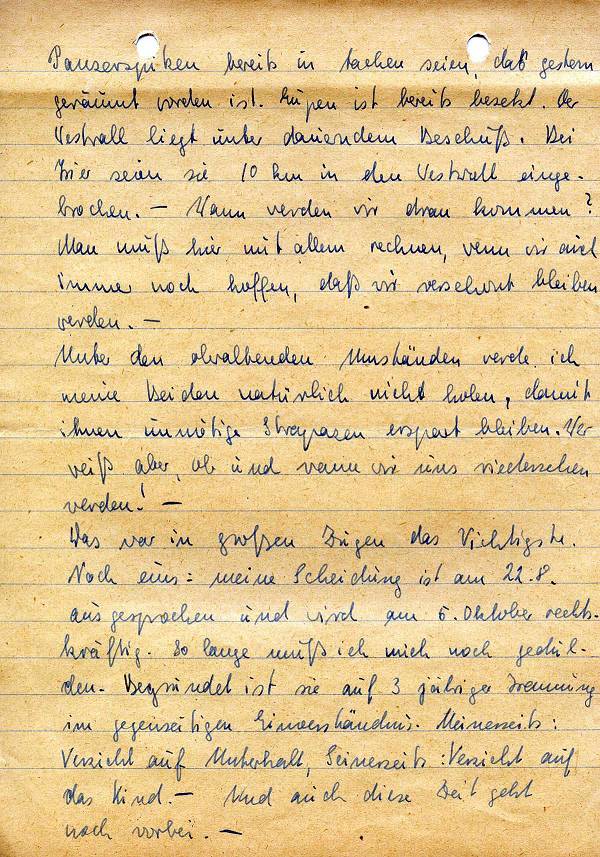 Panzerspitzen bereits in Aachen seien, daß gestern
geräumt worden ist. Eupen ist bereits besetzt. Der
Westwall liegt unter dauerndem Beschuß. Bei
Trier seien sie 10 km in den Westwall einge-
brochen. — Wann werden wir dran kommen?
Man muß hier mit allem rechnen, wenn wir auch
immer noch hoffen, daß wir verschont bleiben
werden. —
Unter den obwaltenden Umständen werde ich
meine Beiden natürlich nicht holen, damit
ihnen unnötige Strapazen erspart bleiben. Wer
weiß aber, ob und wann wir uns wiedersehen
werden! —
Das war in großen Zügen das Wichtigste.
Noch eins: meine Scheidung ist am 22.8.
ausgesprochen und wird am 5. Oktober rechts-
kräftig. So lange muß ich mich noch gedul-
den. Begründet ist sie auf 3 jähriger Trennung
im gegenseitigen Einverständnis. Meinerseits:
Verzicht auf Unterhalt, Seinerseits: Verzicht auf
das Kind. — Und auch diese Zeit geht
noch vorbei. —